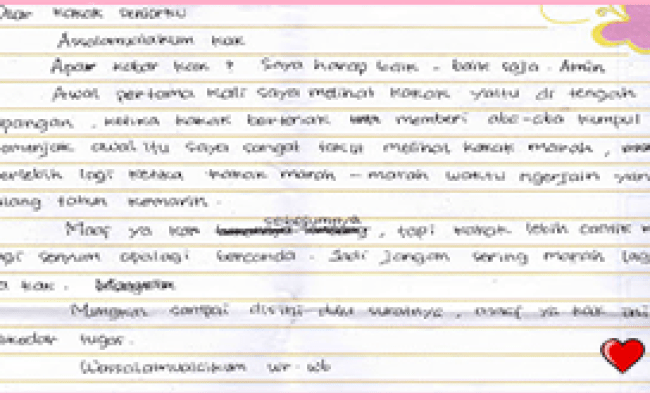 Dear kakak seniorku
Assalamualaikum kak
Apa kabar kak ? Saya harap baik - baik saja . Amin
Awal pertama kali saya melihat kakak yaitu di tengah
apangan , ketika kakak berteriak memberi aba-aba kumpul
semenjak awal itu saya sangat takut melihat kakak marah ,
erlebih lagi ketika kakak marah - marah waktu ngerjain yang
ulang tahun kemarin .
Maaf ya kak sebelumnya , tapi kakak lebih cantik
agi senyum apalagi bercanda . Jadi jangan sering marah lag
a kak .
Mungkin sampai disini dulu suratnya , maaf ya kak ini
ekedar tugas .
Wassalamualaikum wr . wb